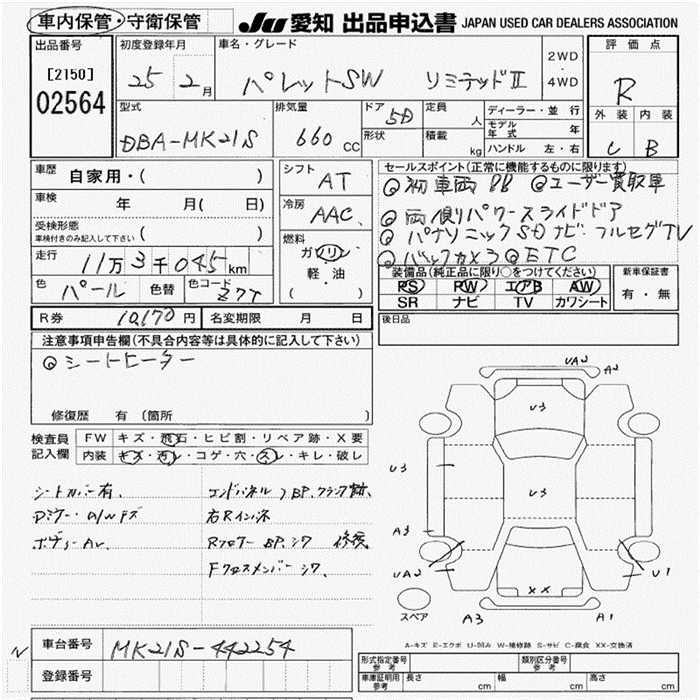 車内保管・守衛保管 JU 愛知 出品申込書 JAPAN USED CAR DEALERS ASSOCIATION
出品番号 初度登録年月 車名・グレード 2WD ・ 4WD 評価点
[2150] 25 2月 パレットSW リミテッドⅡ R
02564 型式 排気量 ドア 5D 定員 人 ディーラー・並行 外装 内装
DBA-MK21S 660cc 形状 積載 kg モデル年式 年 C B
ハンドル 左・右
車歴 自家用・( ) シフト AT セールスポイント(正常に機能するものに限ります)
車検 年 月( 日) 冷房 AAC ◎初車両BB ◎ユーザー買取車
受検形態 車検付きのみ記入して下さい ( ) ◎両側パワースライドドア
走行 11万3千045km 燃料 ガソリン 軽・油 ( ) ◎パナソニックSDナビ フルセグTV
◎バックカメラ◎ETC
色 パール 色替 色コード Z7T 装備品(純正品に限り○をつけてください) 新車保証書
PS PW エアB AW 有・無
SR ナビ TV カワシート
R券 10,170円 名変期限 月 日 後日品
注意事項申告欄(不具合内容等は具体的に記入して下さい)
◎シートヒーター
修復歴 有 (箇所
検査員記入欄 FW キズ・飛石・ヒビ割・リペア跡・X要
内装 キズ・汚レ・コゲ・穴・スレ・キレ・破レ
シートカバー有、 エンドパネルBP、クランプ跡、
Dミラー・ 右Rインネ
ボディー Rフロアー BP、シワ 修復
Fクロスメンバー シワ、
UA2 A2
U3
U3 U3
A3
UA2 U1
XX
スペア A3 A1
A-キズ E-エクボ U-凹み W-補修跡 S-サビ C-腐食 XX-交換済
N 車台番号 MK21S-442254
登録番号
形式指定番号 参考 類別区分番号 参考
車庫証明用 参考 長さ cm 幅 cm 高さ cm